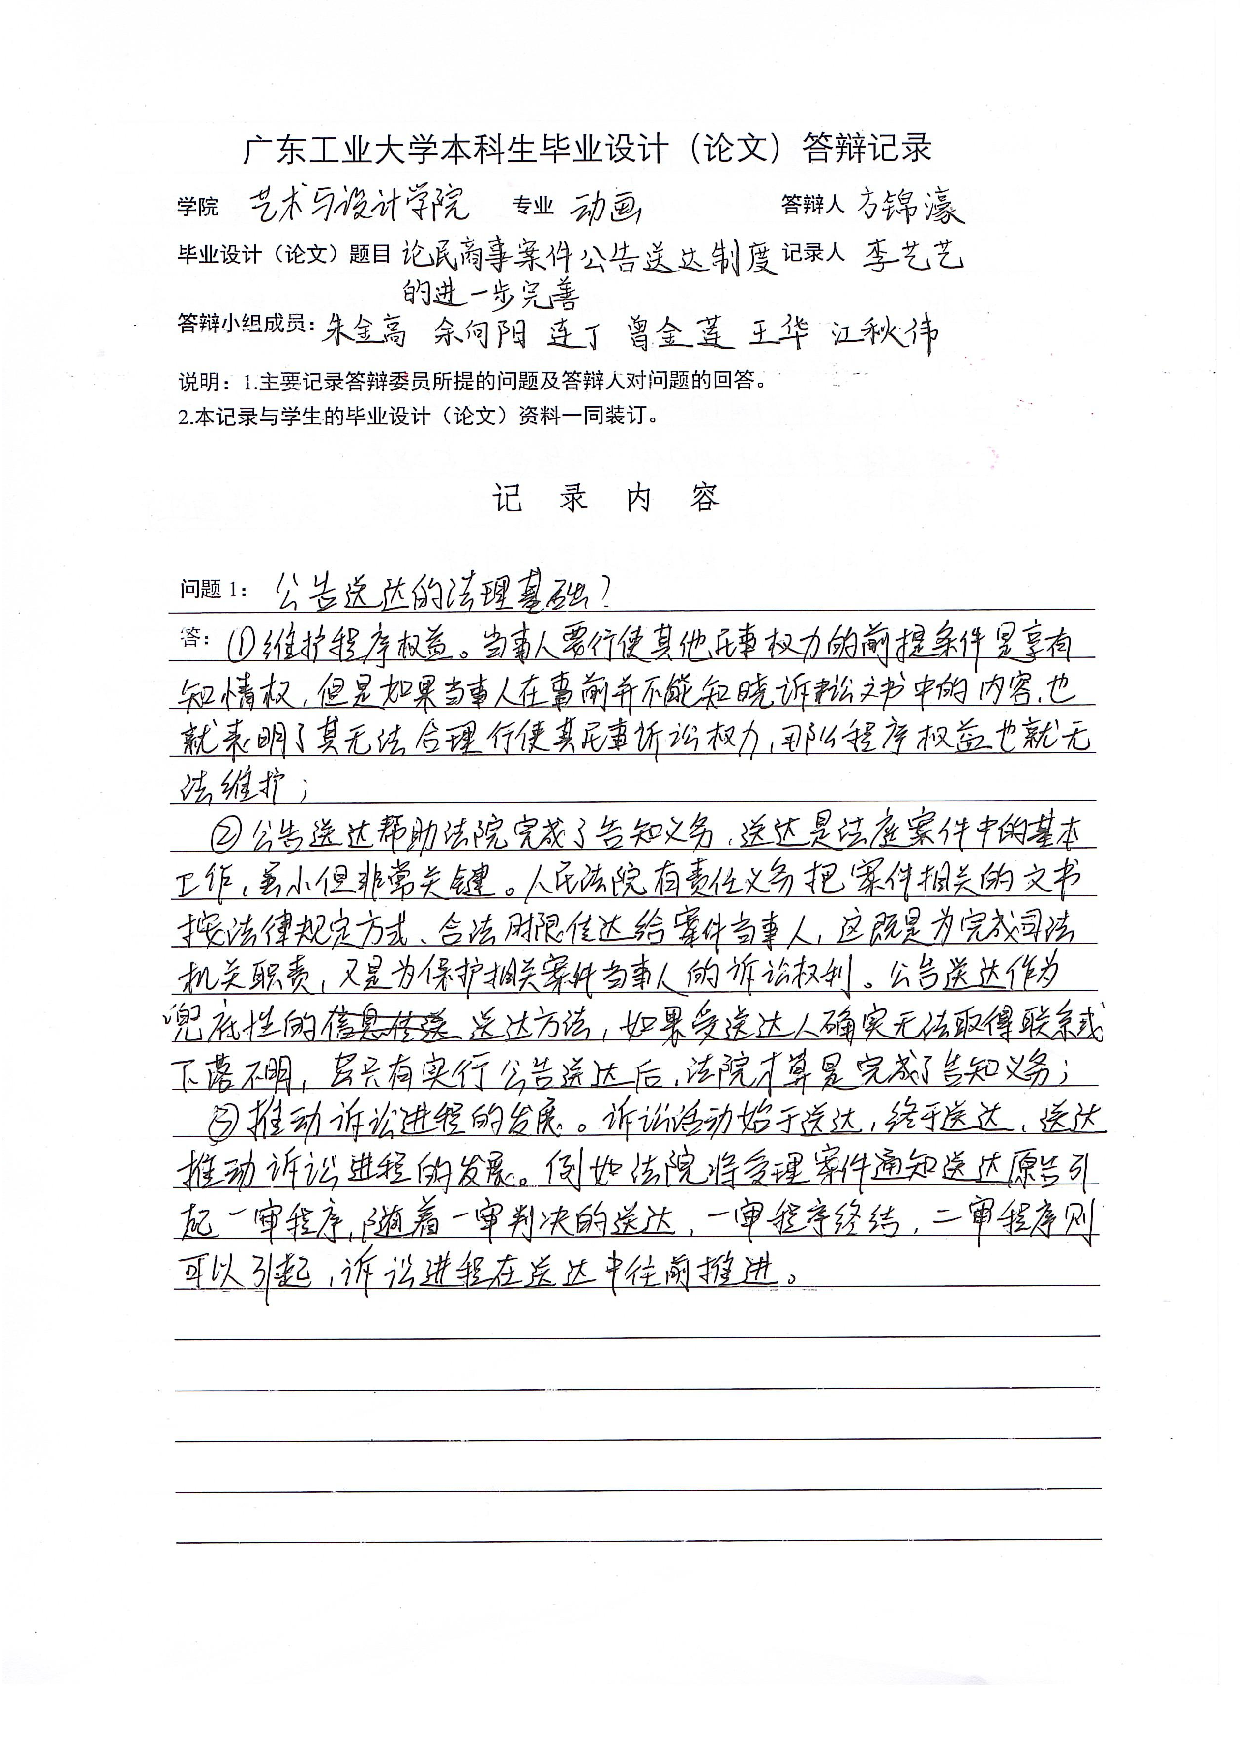 广东工业大学本科生毕业设计（论文）答辩记录
学院 艺术与设计学院 专业 动画 答辩人 方锦濠
毕业设计（论文）题目 论民商事案件公告送达制度 记录人 李艺艺
的进一步完善
答辩小组成员：朱金高 余向阳 连丁 曾金莲 王华 江秋伟
说明：1.主要记录答辩委员所提的问题及答辩人对问题的回答。
2.本记录与学生的毕业设计（论文）资料一同装订。
记 录 内 容
问题 1：公告送达的法理基础？
答：①维护程序权益。当事人要行使其他民事权力的前提条件是享有
知情权，但是如果当事人在事前并不能知晓诉讼文书中的内容，也
就表明了其无法合理行使其民事诉讼权力，那么程序权益也就无
法维护；
②公告送达帮助法院完成了告知义务，送达是法庭案件中的基本
工作，虽小但非常关键。人民法院有责任义务把案件相关的文书
按法律规定方式、合法时限传达给案件当事人，这既是为完成司法
机关职责，又是为保护相关案件当事人的诉讼权利。公告送达作为
兜底性的信息传送 送达方法，如果受送达人确实无法取得联系或
下落不明，只有实行公告送达后，法院才算是完成了告知义务；
③推动诉讼进程的发展。诉讼活动始于送达，终于送达，送达
推动诉讼进程的发展。例如法院将受理案件通知送达原告引
起一审程序，随着一审判决的送达，一审程序终结，二审程序则
可以引起，诉讼进程在送达中往前推进。